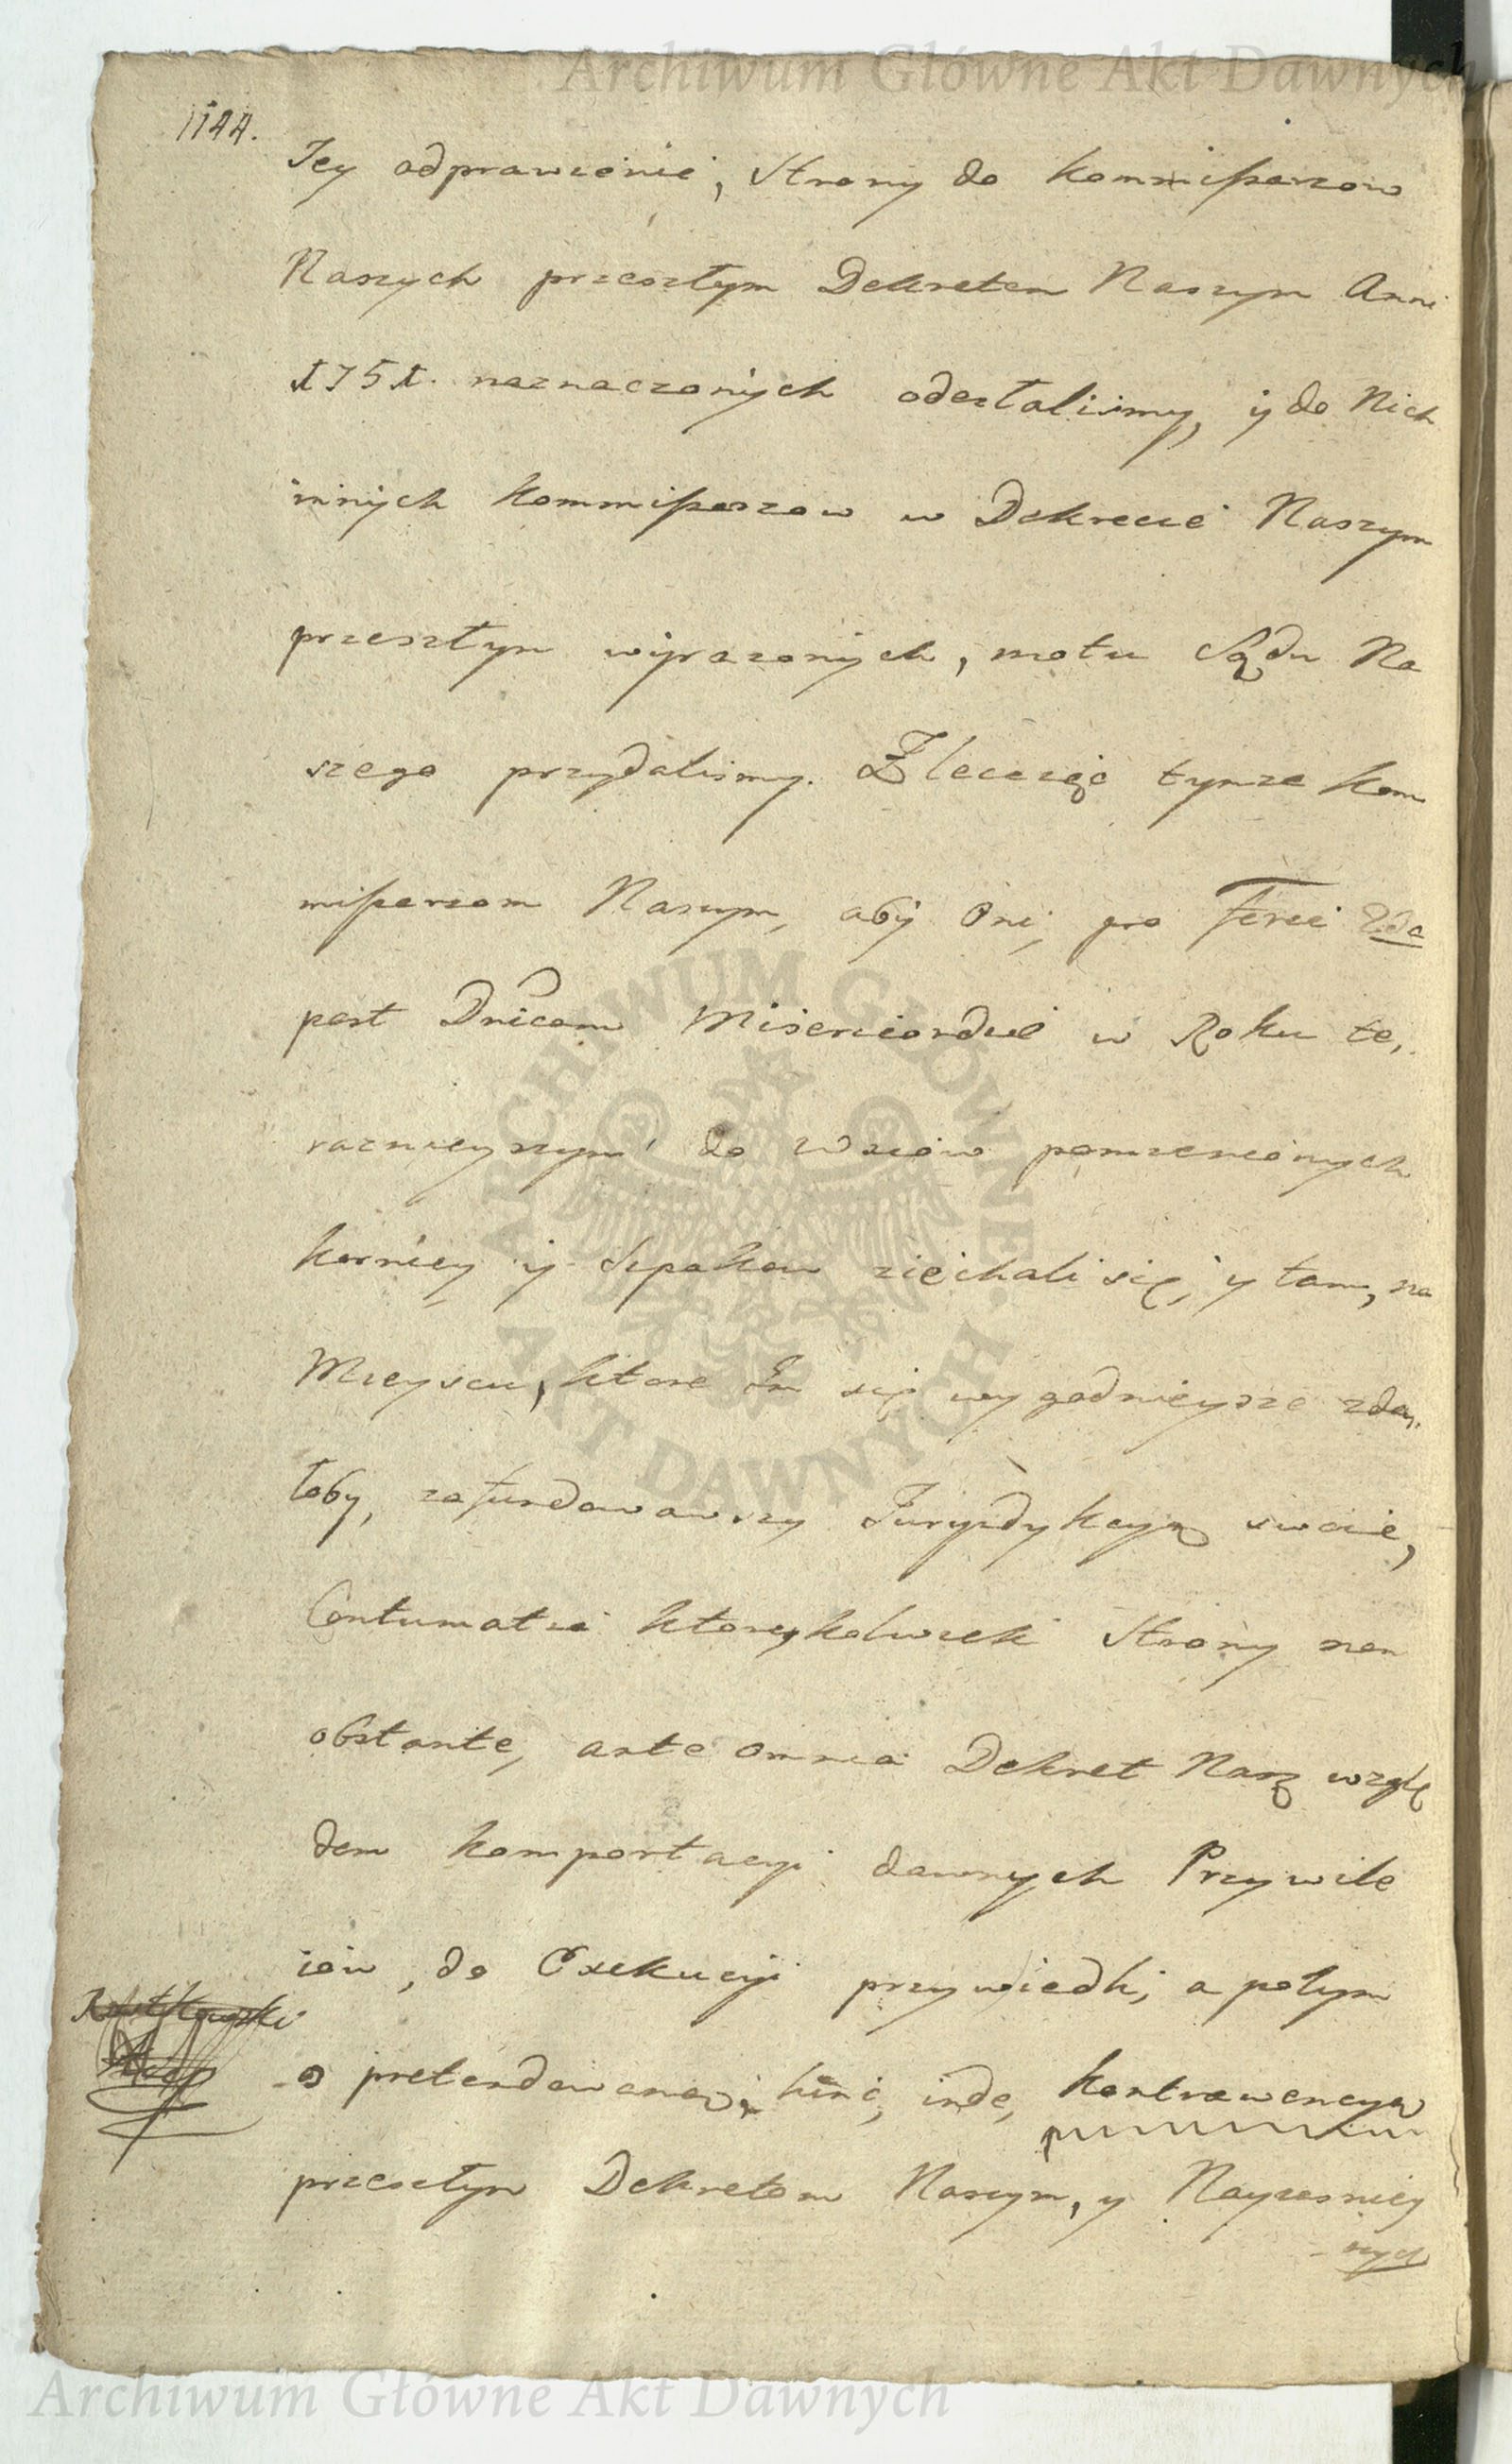 Archiwum Główne Akt Dawnych
1144.
Jey odprawienie, Strony do Kommissarzow
Naszych przeszłym Dekretem Naszym Anni
1751. naznaczonych odesłalismy, y do Nich
innych Kommissarzow w Dekrecie Naszym
przeszłym wyrazonych, motu Sądu Na
szego przydalismy. Zlecaiąc tymze Kom
missarzom Naszym, aby Oni, pro Feria 2da
post Dnicam Misericordiae w Roku te,
raznieyszym do Wsiow pomienionych
Kornicy y Szpakow ziechali się, y tam, na
Mieyscu, ktore Im się wygodnieysze zda,
łoby, zafundowawszy Jurysdykcyą swoie,
Contumatia ktoreykolwiek Strony non
obstante, ante omnia Dekret Nasz wzglę
dem komportacyi dawnych Przywile
iow, do Exekucyi przywiedli, a potym
o pretendowaną, hinc, inde, kontrawencyą
przeszłym Dekretom Naszym, y Nayiasniey
szych
ARCHIWUM GŁÓWNE AKT DAWNYCH
Archiwum Główne Akt Dawnych